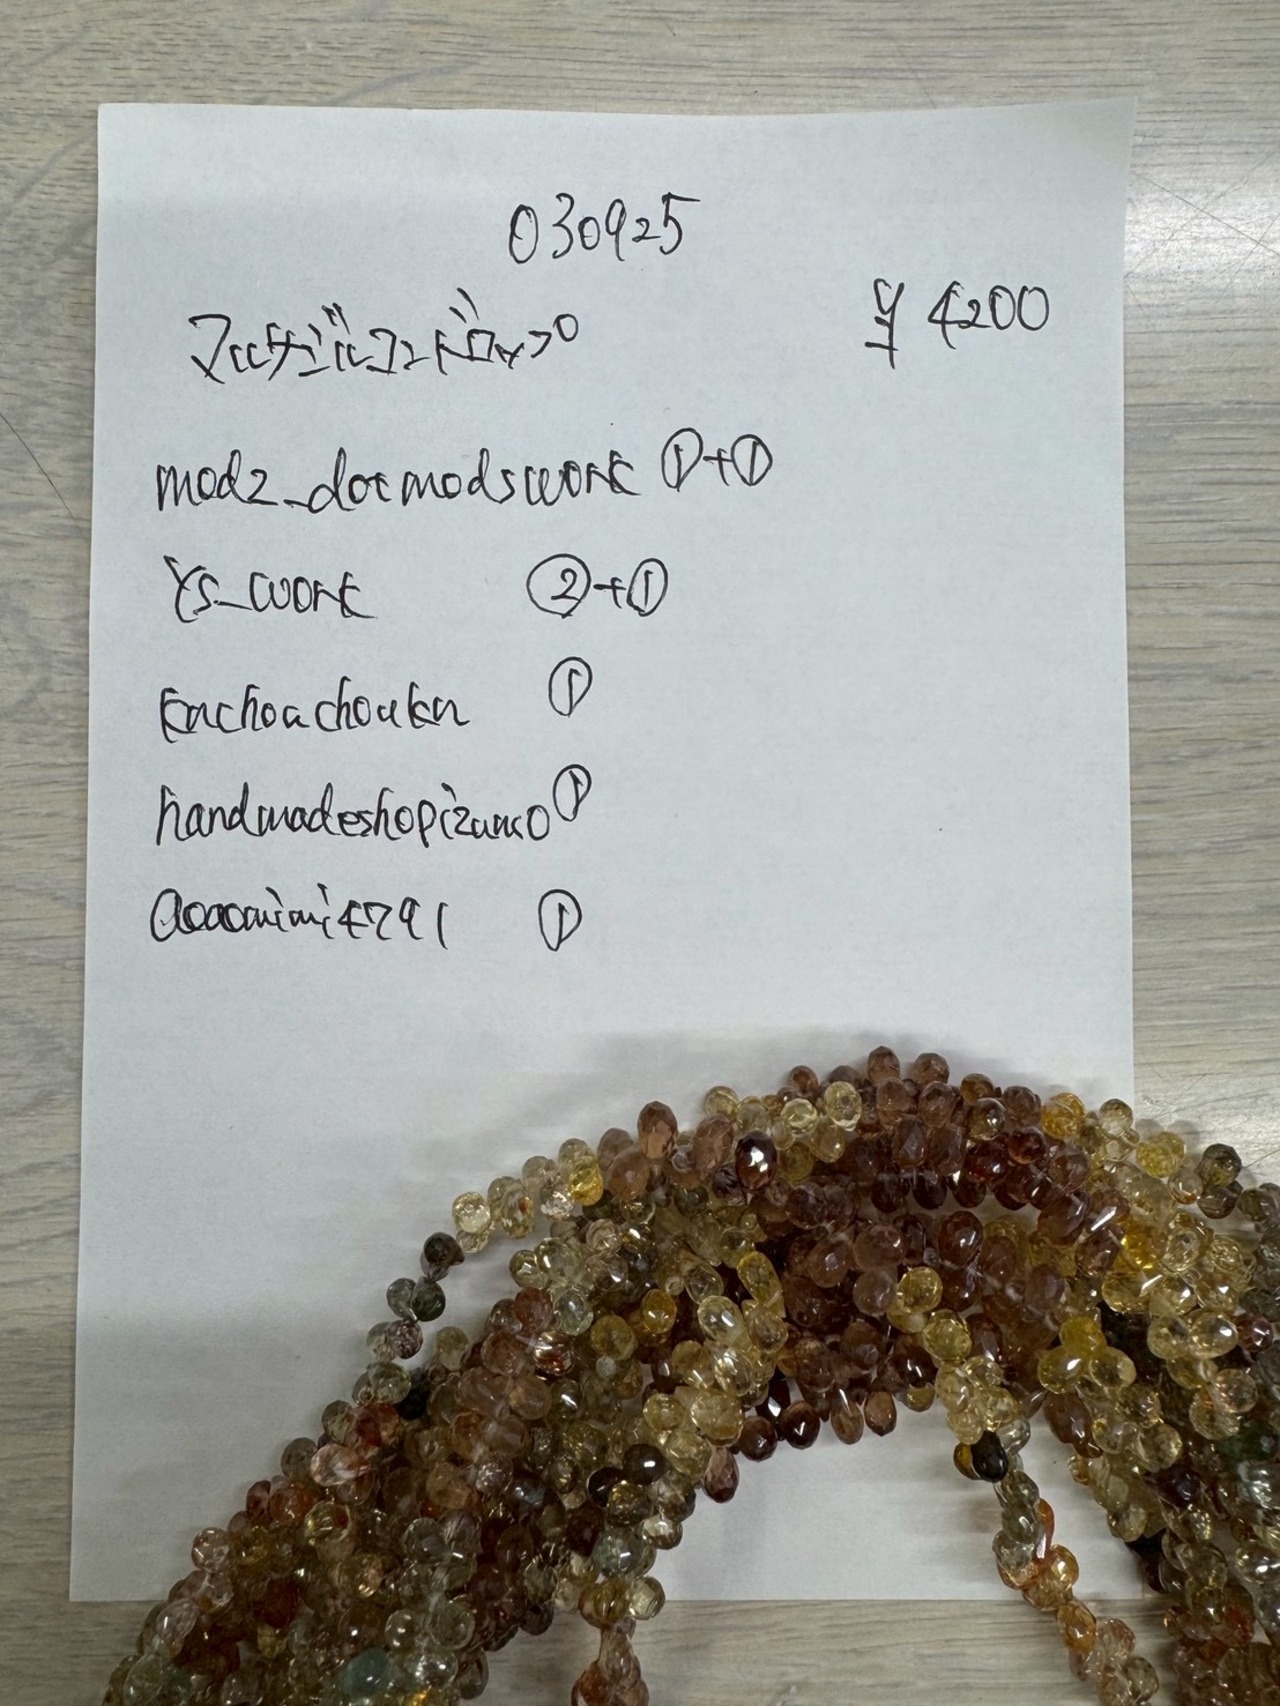 030925
マルチジルコンドロップ
¥4200
modz_dotmodswork ①+①
Ys_work ②+①
kachoachouka ①
handmadeshopizumo ①
aoaomimi4791 ①